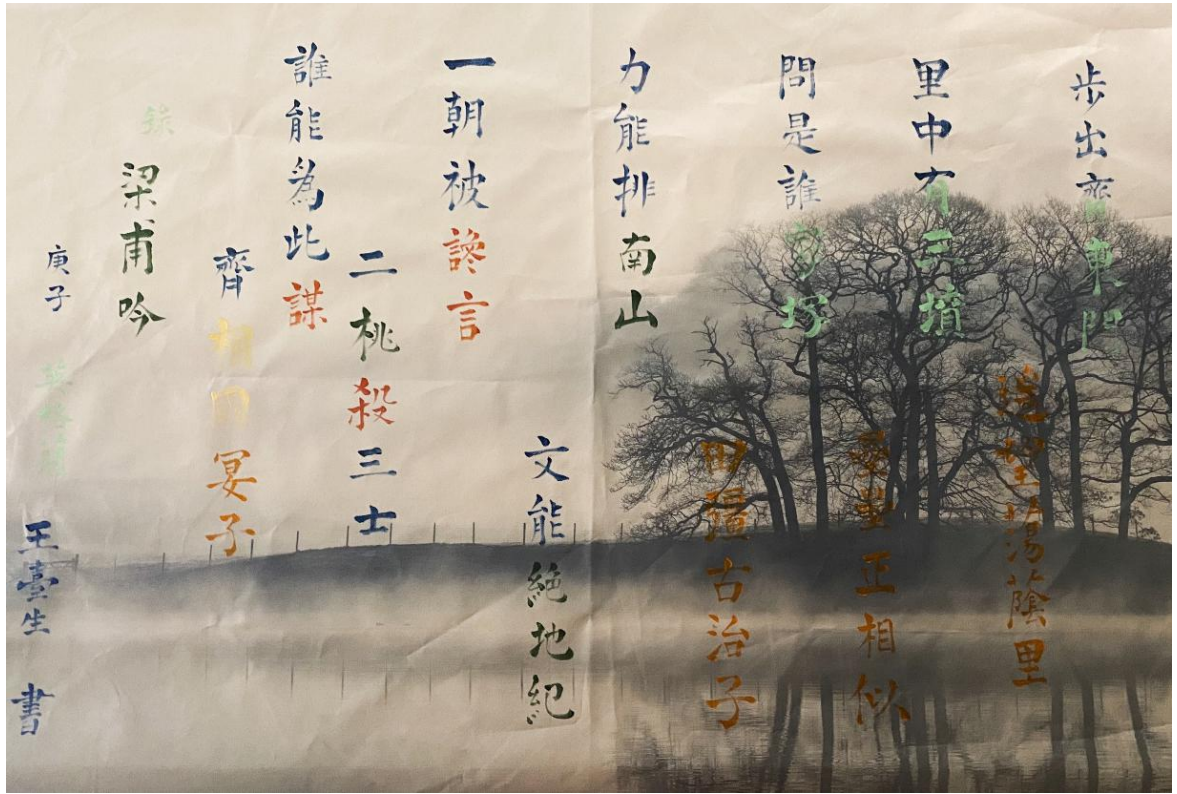 步出齊東門
遙望蕩蔭里
里中有三墳
正相似
問是誰家塚
田疆古治子
力能排南山
文能絶地紀
一朝被讒言
二桃殺三士
誰能為此謀
齊相国宴子
錄 梁甫吟
庚子
王臺生 書